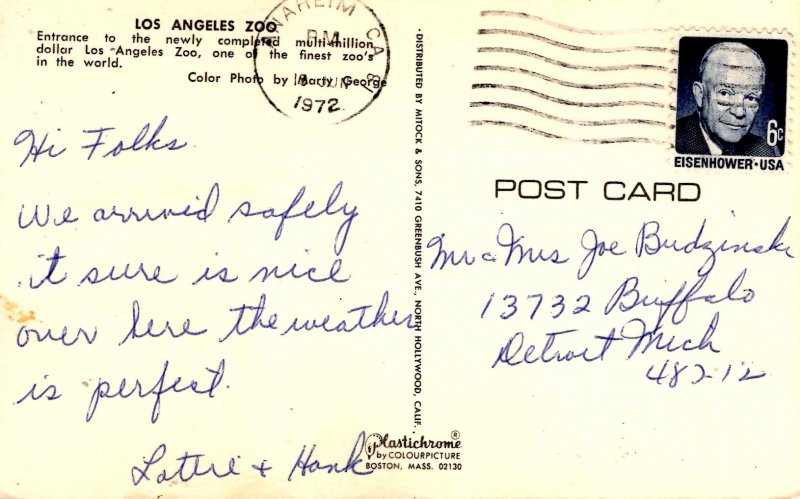 LOS ANGELES ZOO
Entrance to the newly completed multi-million
dollar Los Angeles Zoo, one of the finest zoo's
in the world.
Color Photo by Marty George
ANAHEIM CA
PM
JUN
1972
6c
EISENHOWER·USA
POST CARD
Hi Folks
We arrivid safely
it sure is nice
over here the weather
is perfect.
Lottie + Hank
·DISTRIBUTED BY MITOCK & SONS, 7410 GREENBUSH AVE., NORTH HOLLYWOOD, CALIF.
Plastichrome ®
by COLOURPICTURE
BOSTON, MASS. 02130
Mr & Mrs Joe Budzinski
13732 Buffalo
Detroit Mich
48212